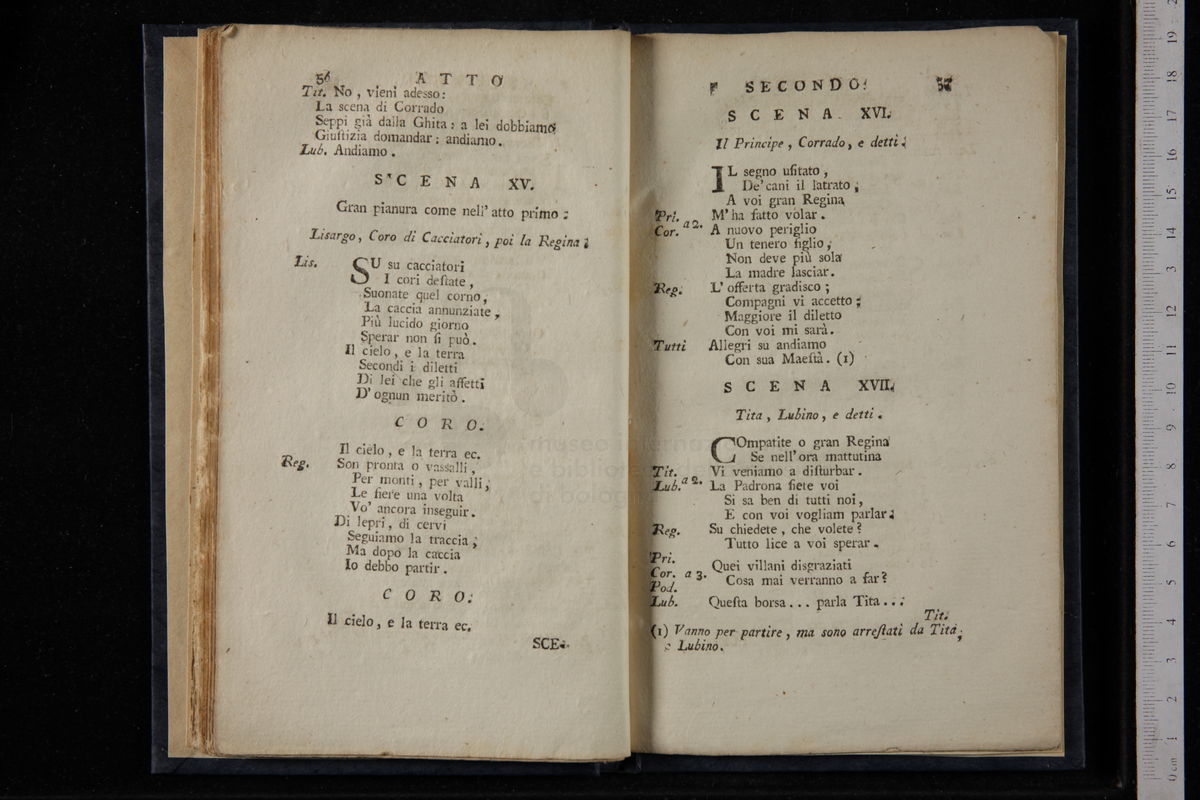 56 ATTO
Tit. No, vieni adesso:
La scena di Corrado
Seppi già dalla Ghita: a lei dobbiamo
Giuſtizia domandar: andiamo.
Lub. Andiamo.
SCENA XV.
Gran pianura come nell' atto primo:
Lisargo, Coro di Cacciatori, poi la Regina.
Lis. SU su cacciatori
I cori deſtate,
Suonate quel corno,
La caccia annunziate,
Più lucido giorno
Sperar non ſi può.
Il cielo, e la terra
Secondi i diletti
Di lei che gli affetti
D'ognun meritò.
CORO.
Il cielo, e la terra ec.
Reg. Son pronta o vassalli,
Per monti, per valli,
Le fiere una volta
Vo' ancora inseguir.
Di lepri, di cervi
Seguiamo la traccia,
Ma dopo la caccia
Io debbo partir.
CORO.
Il cielo, e la terra ec.
SCE-
SECONDO. 57
SCENA XVI.
Il Principe, Corrado, e detti.
IL segno uſitato,
De' cani il latrato,
A voi gran Regina
Pri. M'ha fatto volar.
Cor. a 2. A nuovo periglio
Un tenero figlio,
Non deve più sola
La madre lasciar.
Reg. L' offerta gradisco;
Compagni vi accetto;
Maggiore il diletto
Con voi mi sarà.
Tutti Allegri su andiamo
Con sua Maeſtà. (1)
SCENA XVII.
Tita, Lubino, e detti.
COmpatite o gran Regina
Se nell' ora mattutina
Tit. Vi veniamo a diſturbar.
Lub. a 2. La Padrona ſiete voi
Si sa ben di tutti noi,
E con voi vogliam parlar.
Reg. Su chiedete, che volete?
Tutto lice a voi sperar.
Pri.
Quei villani disgraziati
Cor. a 3. Cosa mai verranno a far?
Pod.
Lub. Queſta borsa... parla Tita...
Tit.
(1) Vanno per partire, ma sono arreſtati da Tita,
e Lubino.
museo internaz
e biblioteca de
di bolo